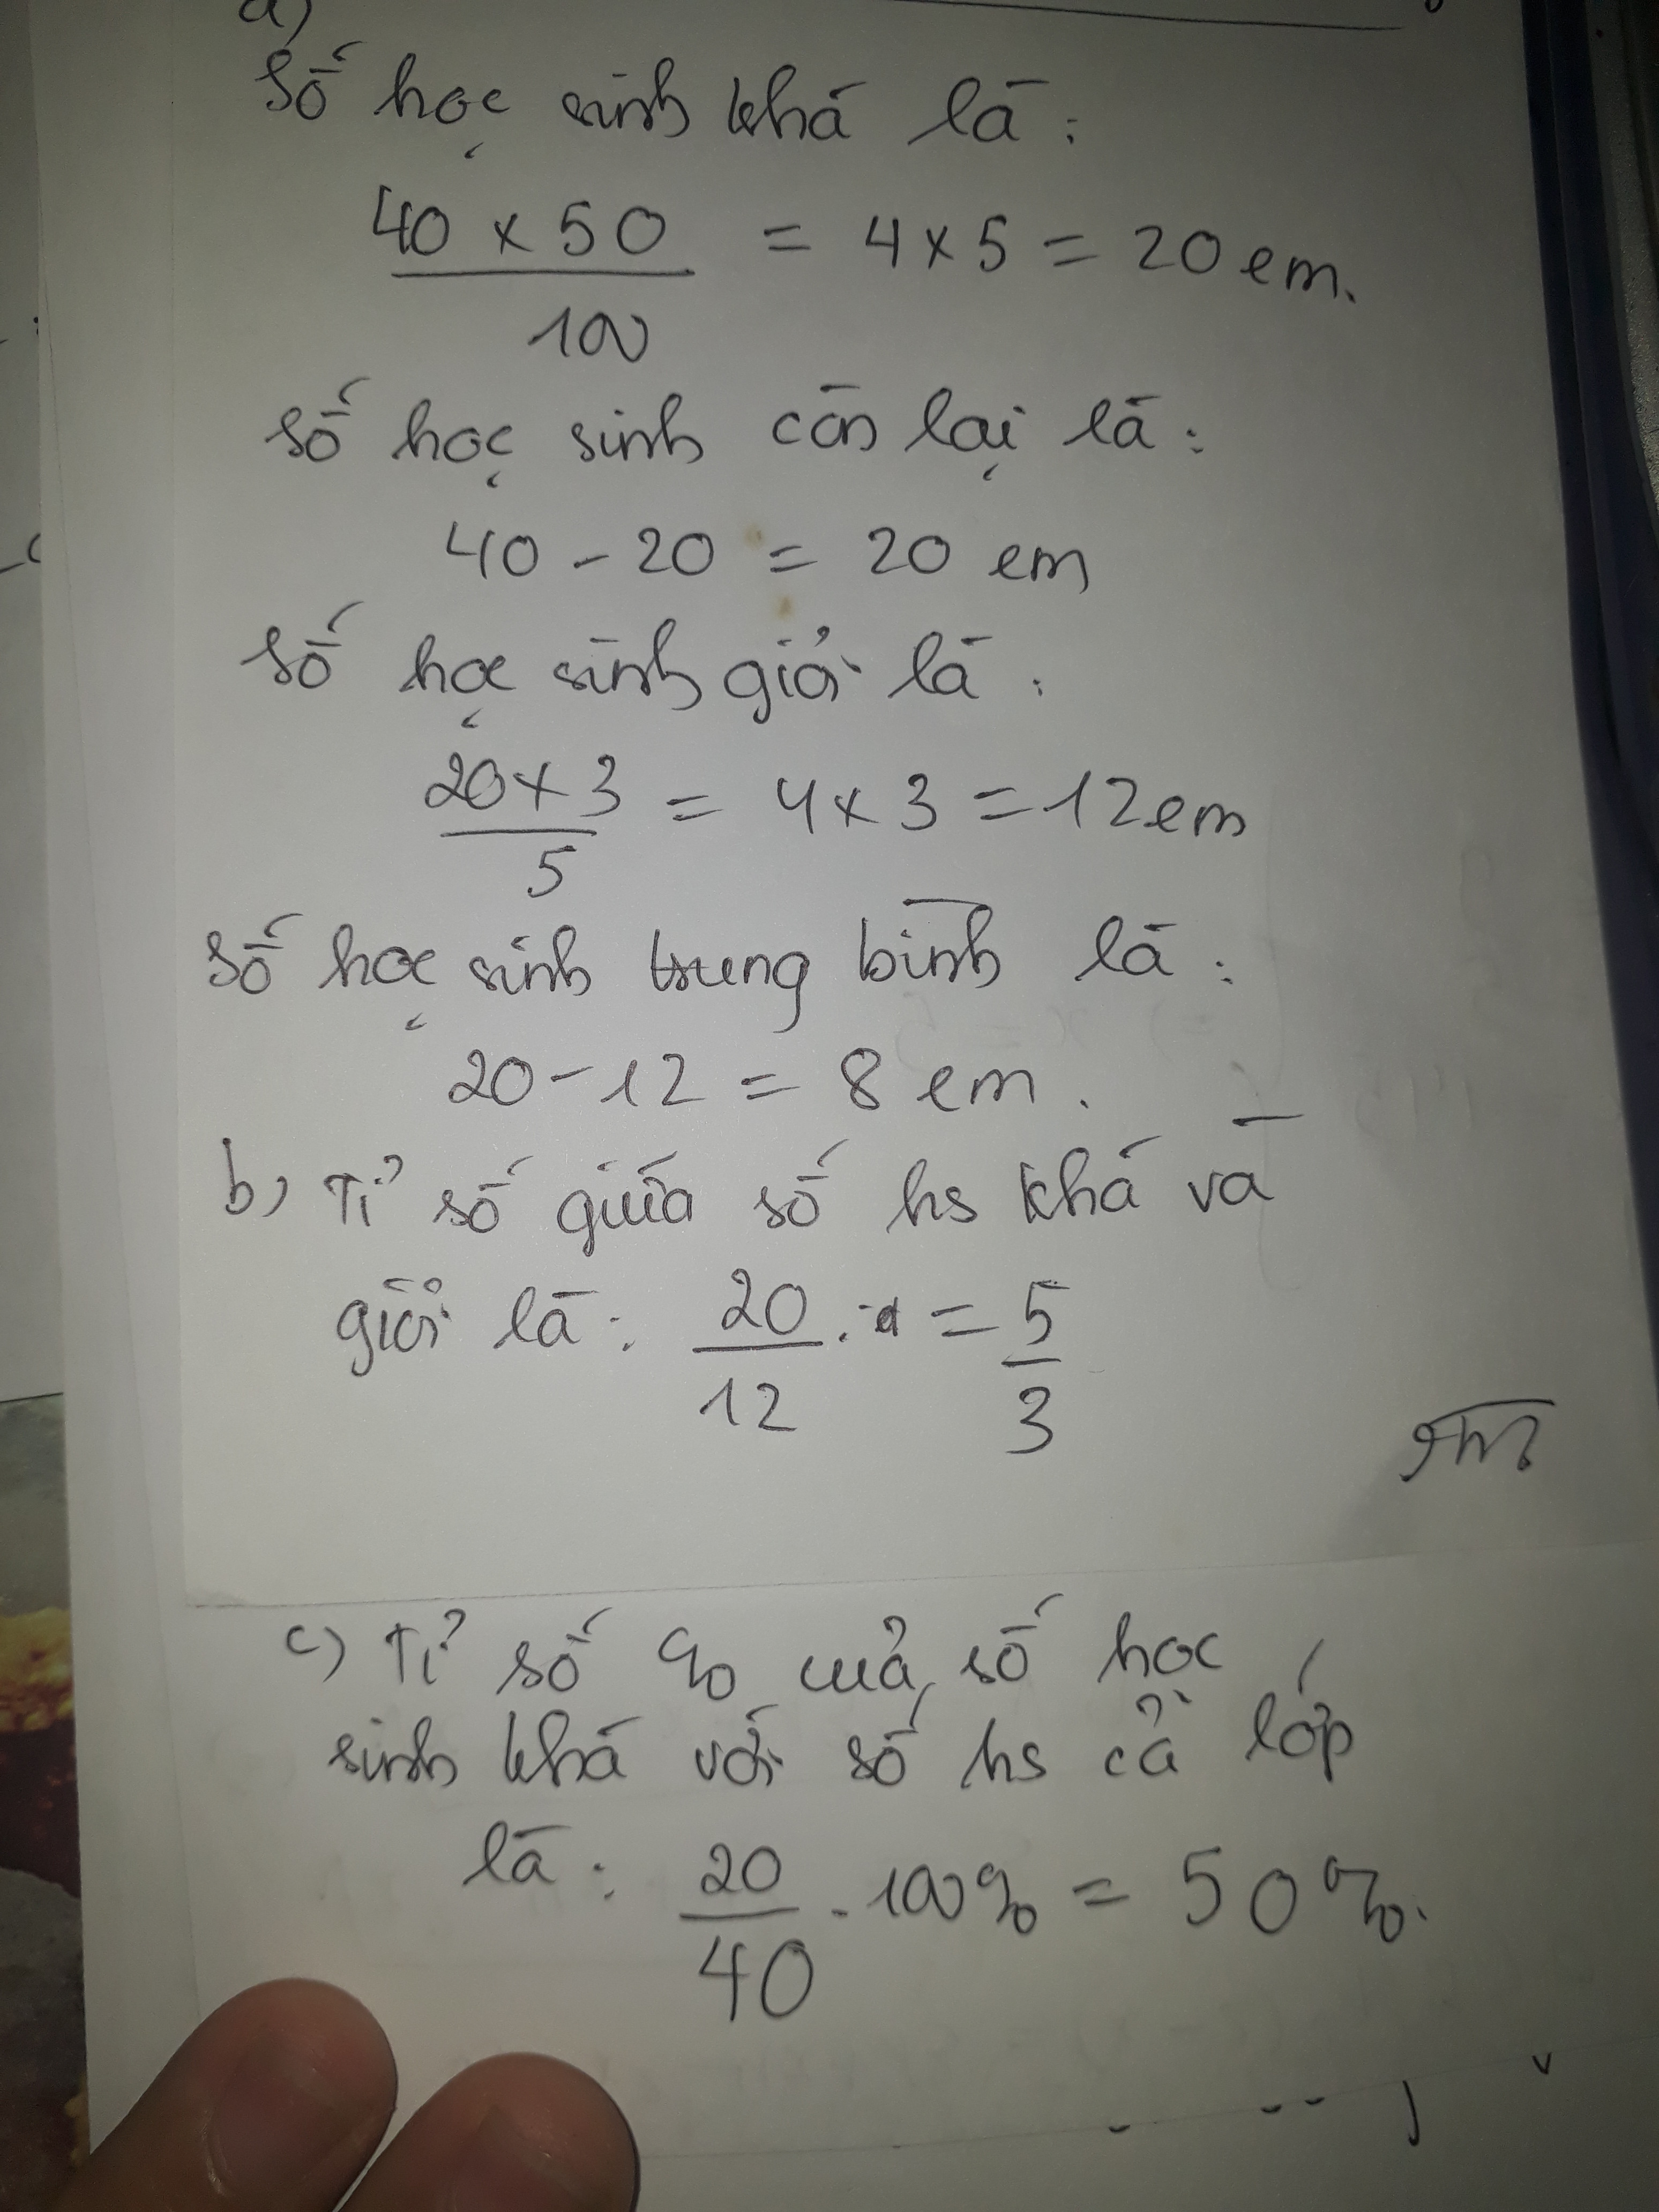 a)
Số học sinh khá là:
40 x 50 / 100 = 4 x 5 = 20 em.
Số học sinh còn lại là:
40 - 20 = 20 em
Số học sinh giỏi là:
20 x 3 / 5 = 4 x 3 = 12 em
Số học sinh trung bình là:
20 - 12 = 8 em.
b) Tỉ số giữa số hs khá và
giỏi là: 20 / 12 = 5 / 3
c) Tỉ số % của số học
sinh khá với số hs cả lớp
là: 20 / 40 . 100% = 50%.